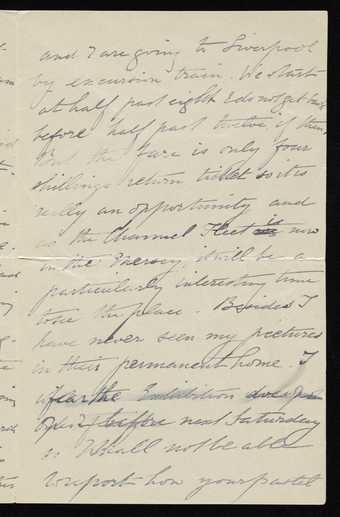 and I are going to Liverpool
by excursion train. We start
at half past eight & do not get back
before half past twelve, if then.
But the fare is only four
shillings return ticket so it is
really an opportunity and
as the Channel Fleet is now
in the Mersey it will be a
particularly interesting time
to see the place. Besides I
have never seen my pictures
in their permanent home. I
fear the Exhibition does
open before next Saturday
so I shall not be able
to report how your pastel